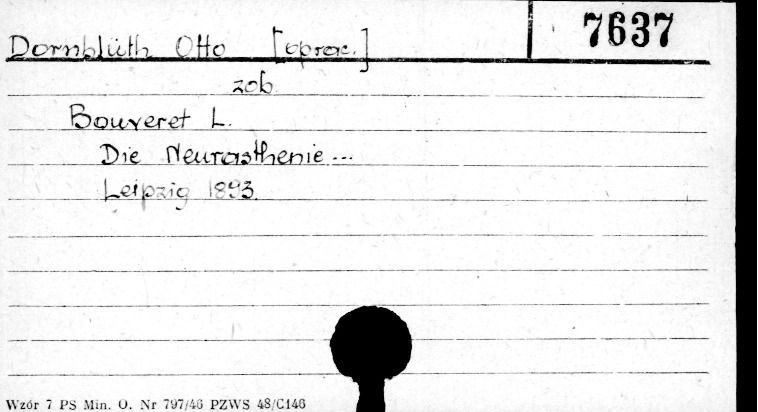 7637
Dornblüth Otto [oprac.]
zob.
Bouveret L.
Die Neurasthenie...
Leipzig 1893.
Wzór 7 PS Min. O. Nr 797/46 PZWS 48/C146